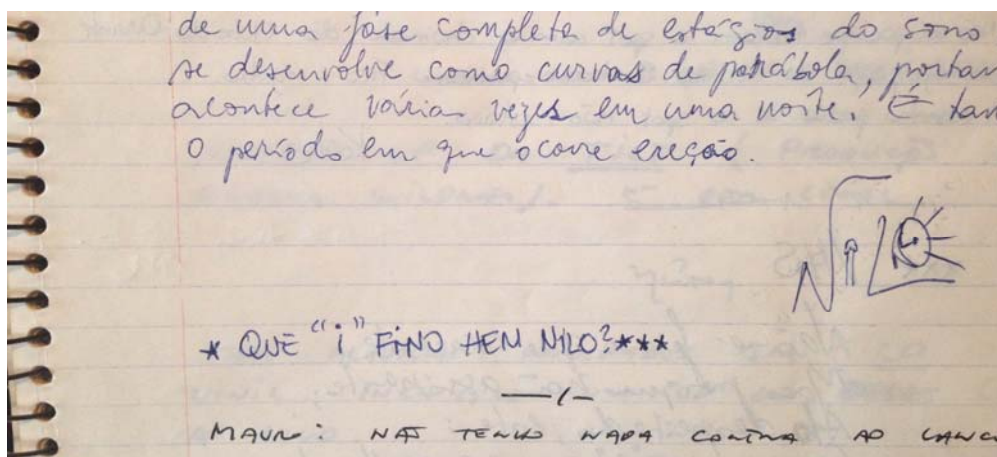 de uma fase completa de estágios do sono
se desenvolve como curvas de parábola, portan
acontece várias vezes em uma noite. É tam
o período em que ocorre ereção.
NiLO
* QUE "i" FINO HEM NILO?***
—/—
MAURO: NÃO TENHO NADA CONTRA AO